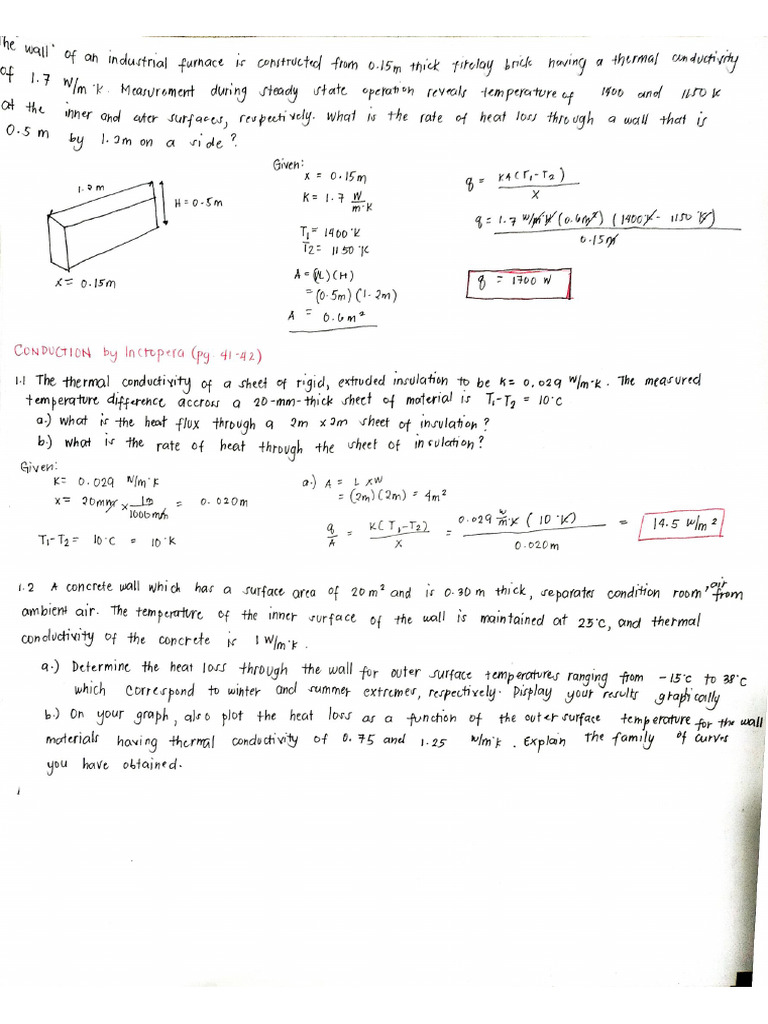 The wall of an industrial furnace is constructed from 0.15m thick fireclay brick having a thermal conductivity
of 1.7 W/m·K. Measurement during steady state operation reveals temperature of 1400 and 1150 K
at the inner and outer surfaces, respectively. What is the rate of heat loss through a wall that is
0.5 m by 1.2m on a side?
1.2 m
H = 0.5m
x = 0.15m
Given:
x = 0.15m
K = 1.7 W/m·K
T1 = 1400 °K
T2 = 1150 °K
A = (L)(H)
= (0.5m)(1.2m)
A = 0.6m²
q = KA(T1-T2)/x
q = 1.7 W/m·K (0.6m²) (1400K - 1150 K)/0.15m
q = 1700 W
CONDUCTION by Incropera (pg. 41-42)
1.1 The thermal conductivity of a sheet of rigid, extruded insulation to be K= 0.029 W/m·K. The measured
temperature difference accross a 20-mm-thick sheet of material is T1-T2 = 10°C
a.) what is the heat flux through a 2m x 2m sheet of insulation?
b.) what is the rate of heat through the sheet of insulation?
Given:
K= 0.029 W/m·K
x= 20mm x 1m/1000mm = 0.020m
T1-T2= 10°C = 10°K
a.) A = L x W
= (2m)(2m) = 4m²
q/A = K(T1-T2)/x = 0.029 W/m·K (10°K)/0.020m = 14.5 W/m²
1.2 A concrete wall which has a surface area of 20m² and is 0.30 m thick, separates condition room air from
ambient air. The temperature of the inner surface of the wall is maintained at 25°C, and thermal
conductivity of the concrete is 1 W/m·K.
a.) Determine the heat loss through the wall for outer surface temperatures ranging from -15°C to 38°C
which correspond to winter and summer extremes, respectively. Display your results graphically
b.) On your graph, also plot the heat loss as a function of the outer surface temperature for the wall
materials having thermal conductivity of 0.75 and 1.25 W/m·K. Explain the family of curves
you have obtained.